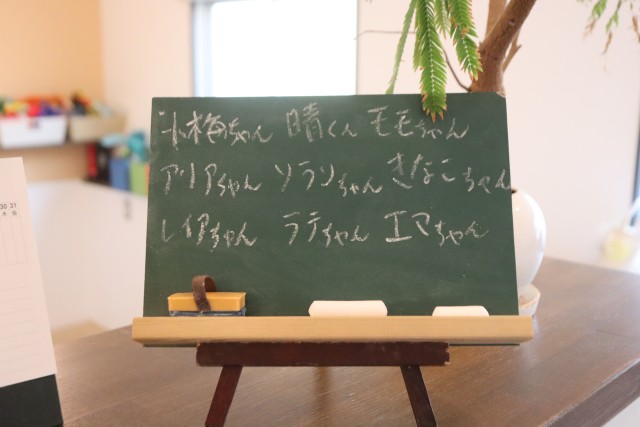 小梅ちゃん 晴くん モモちゃん
アリアちゃん ソラソちゃん きなこちゃん
レイアちゃん ララちゃん エマちゃん
30 31
木 金